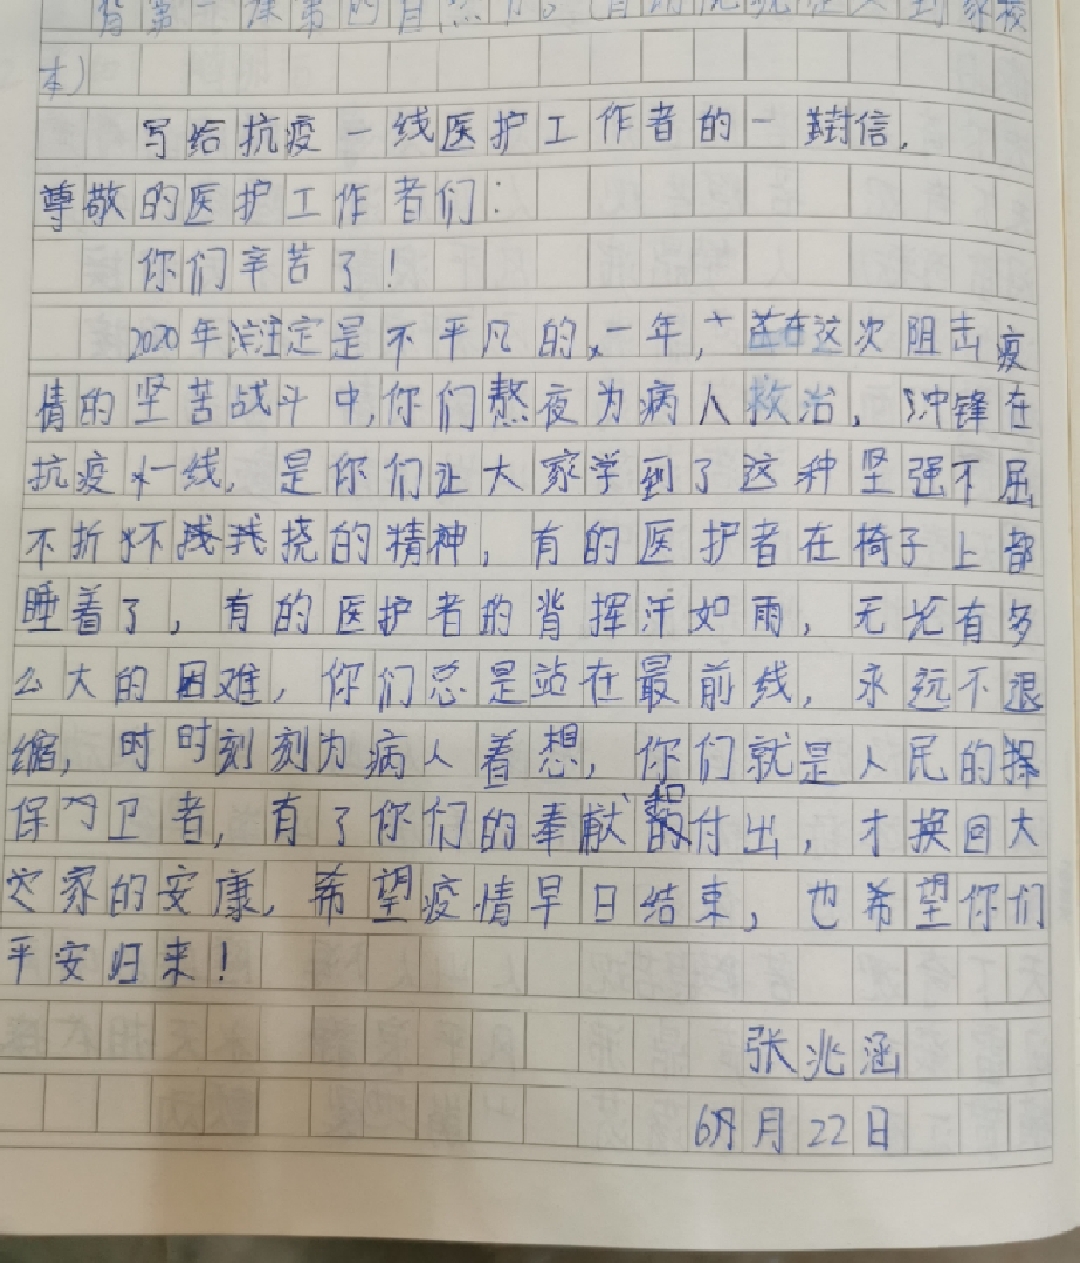 本)
写给抗疫一线医护工作者的一封信.
尊敬的医护工作者们:
你们辛苦了!
2020年注定是不平凡的一年,在这次阻击疫
情的坚苦战斗中,你们熬夜为病人救治,冲锋在
抗疫一线,是你们让大家学到了这种坚强不屈
不折不挠的精神,有的医护者在椅子上都
睡着了,有的医护者的背挥汗如雨,无论有多
么大的困难,你们总是站在最前线,永远不退
缩,时时刻刻为病人着想,你们就是人民的
保卫者,有了你们的奉献和付出,才换回大
家的安康,希望疫情早日结束,也希望你们
平安归来!
张兆涵
6月22日